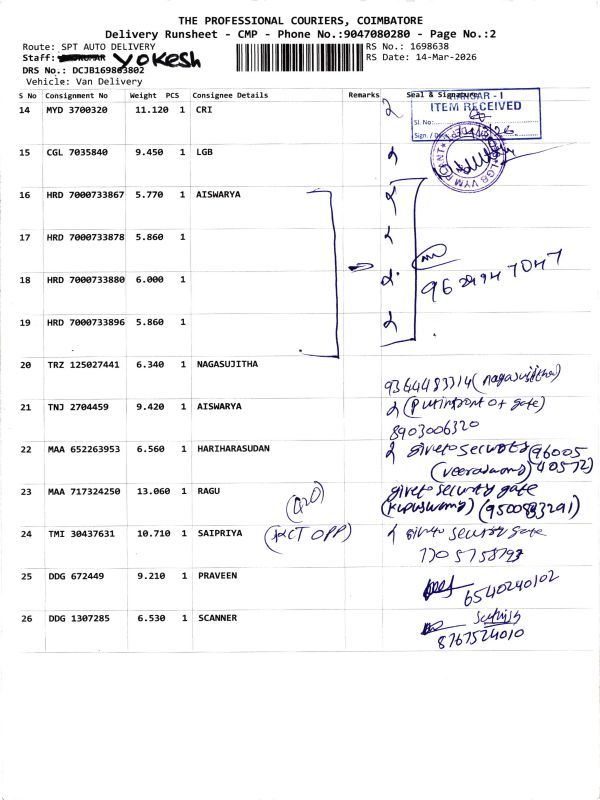 THE PROFESSIONAL COURIERS, COIMBATORE
Delivery Runsheet - CMP - Phone No.:9047080280 - Page No.:2
Route: SPT AUTO DELIVERY
RS No.: 1698638
Staff: YOKESH
RS Date: 14-Mar-2026
DRS No.: DCJB169803802
Vehicle: Van Delivery
S No Consignment No Weight PCS Consignee Details Remarks Seal & Signature
14 MYD 3700320 11.120 1 CRI
ITEM RECEIVED
Sl. No:
15 CGL 7035840 9.450 1 LGB
16 HRD 7000733867 5.770 1 AISWARYA
17 HRD 7000733878 5.860 1
18 HRD 7000733880 6.000 1
19 HRD 7000733896 5.860 1
20 TRZ 125027441 6.340 1 NAGASUJITHA
9364483314 (nagasujitha)
21 TNJ 2704459 9.420 1 AISWARYA
8903006320
22 MAA 652263953 6.560 1 HARIHARASUDAN
(96005
40572)
23 MAA 717324250 13.060 1 RAGU
give to security gate
24 TMI 30437631 10.710 1 SAIPRIYA
give to security gate
25 DDG 672449 9.210 1 PRAVEEN
6540240102
26 DDG 1307285 6.530 1 SCANNER
8767524010